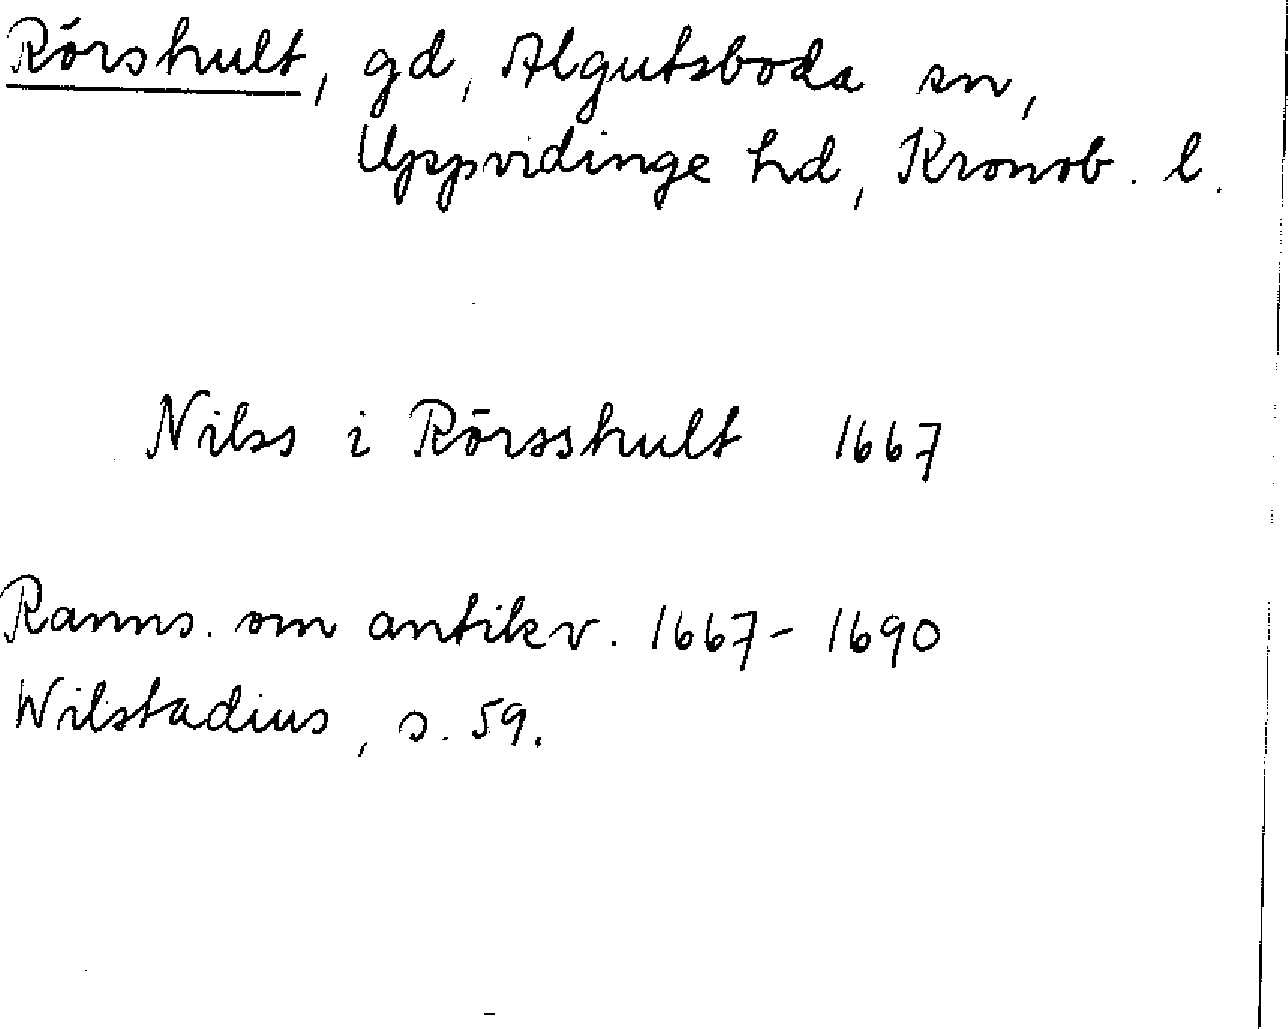 Rörshult, gd, Algutsboda sn,
Uppvidinge hd, Kronob. l.
Nilss i Rörsshult 1667
Ranns. om antikv. 1667-1690
Wilstadius, s. 59.